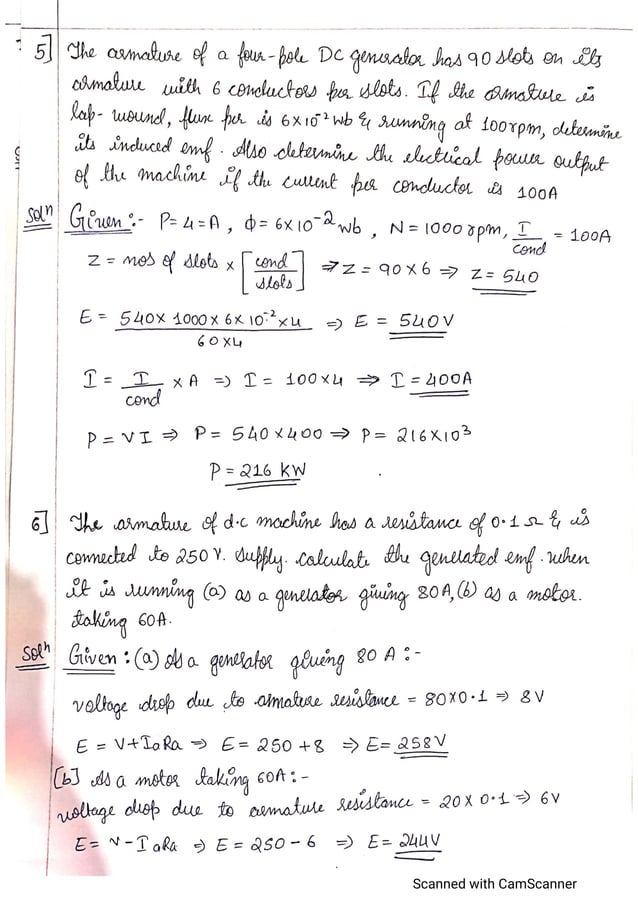 5] The armature of a four-pole DC generator has 90 slots on its
armature with 6 conductors per slots. If the armature is
lap-wound, flux per is 6×10⁻² wb & running at 100rpm, determine
its induced emf. Also determine the electrical power output
of the machine if the current per conductor is 100A
Solⁿ Given :- P=4=A, Φ=6×10⁻² wb, N=1000 rpm, I/cond = 100A
Z = nos of slots × [cond/slots] ⇒ Z = 90×6 ⇒ Z = 540
E = 540× 1000×6×10⁻²×4 / 60×4 ⇒ E = 540V
I = I/cond × A ⇒ I = 100×4 ⇒ I = 400A
P = VI ⇒ P = 540×400 ⇒ P = 216×10³
P = 216 KW
6] The armature of d.c machine has a resistance of 0.1 Ω & is
connected to 250 V. supply. calculate the generated emf. when
it is running (a) as a generator giving 80A, (b) as a motor.
taking 60A.
Solⁿ Given : (a) As a generator giving 80 A :-
voltage drop due to armature resistance = 80×0.1 ⇒ 8V
E = V+IaRa ⇒ E = 250 +8 ⇒ E= 258V
[b] As a motor taking 60A :-
voltage drop due to armature resistance = 20×0.1 ⇒ 6V
E = V-IaRa ⇒ E = 250-6 ⇒ E= 244V
Scanned with CamScanner